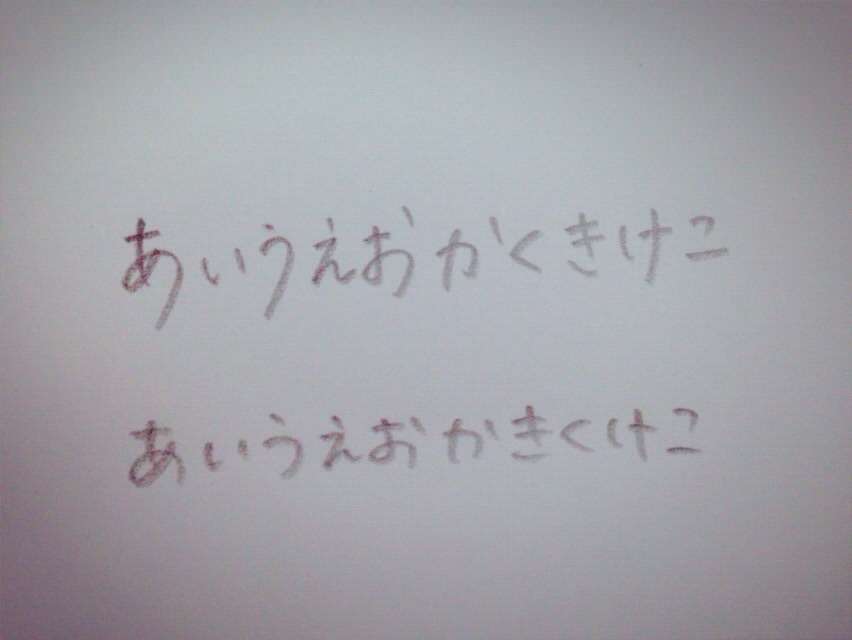 あいうえおかくきけこ
あいうえおかきくけこ